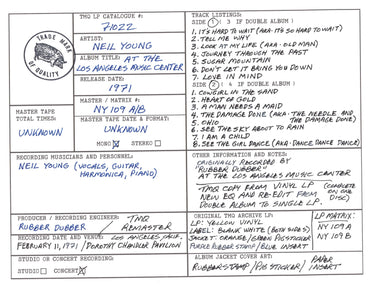 TMQ LP CATALOGUE #:
71022
ARTIST:
NEIL YOUNG
ALBUM TITLE: AT THE
LOS ANGELES MUSIC CENTER
RELEASE DATE:
1971
TRADE MARK
OF QUALITY
MASTER TAPE
TOTAL TIMES:
UNKNOWN
MASTER / MATRIX #:
NY 109 A/B
MASTER TAPE DATE & FORMAT:
UNKNOWN
MONO STEREO
RECORDING MUSICIANS AND PERSONNEL:
NEIL YOUNG (VOCALS, GUITAR,
HARMONICA, PIANO)
PRODUCER / RECORDING ENGINEER:
RUBBER DUBBER / TMQ REMASTER
RECORDING DATE AND VENUE: LOS ANGELES, CALIF.
FEBRUARY 11, 1971 / DOROTHY CHANDLER PAVILION
STUDIO OR CONCERT RECORDING:
STUDIO CONCERT
TRACK LISTINGS:
SIDE 1 ( 3 IF DOUBLE ALBUM )
1. IT'S HARD TO WAIT (AKA: IT'S SO HARD TO WAIT)
2. TELL ME WHY
3. LOOK AT MY LIFE (AKA: OLD MAN)
4. JOURNEY THROUGH THE PAST
5. SUGAR MOUNTAIN
6. DON'T LET IT BRING YOU DOWN
7. LOVE IN MIND
SIDE 2 ( 4 IF DOUBLE ALBUM )
1. COWGIRL IN THE SAND
2. HEART OF GOLD
3. A MAN NEEDS A MAID
4. THE DAMAGE DONE (AKA: THE NEEDLE AND
THE DAMAGE DONE)
5. OHIO
6. SEE THE SKY ABOUT TO RAIN
7. I AM A CHILD
8. SEE THE GIRL DANCE (AKA: DANCE DANCE DANCE)
OTHER INFORMATION AND NOTES:
ORIGINALLY RECORDED BY
"RUBBER DUBBER"
AT THE LOS ANGELES MUSIC CENTER
TMQ COPY FROM VINYL LP (COMPLETE
NEW EQ AND RE-EDIT FROM ON ONE
DOUBLE ALBUM TO SINGLE LP. DISC)
ORIGINAL TMQ ARCHIVE LP:
LP: YELLOW VINYL
LABEL: BLANK WHITE (BOTH SIDES)
JACKET: ORANGE / GREEN PIG STICKER
PURPLE RUBBER STAMP / BLUE INSERT
LP MATRIX:
NY 109 A
NY 109 B
ALBUM JACKET COVER ART:
RUBBER STAMP / PIG STICKER / PAPER INSERT